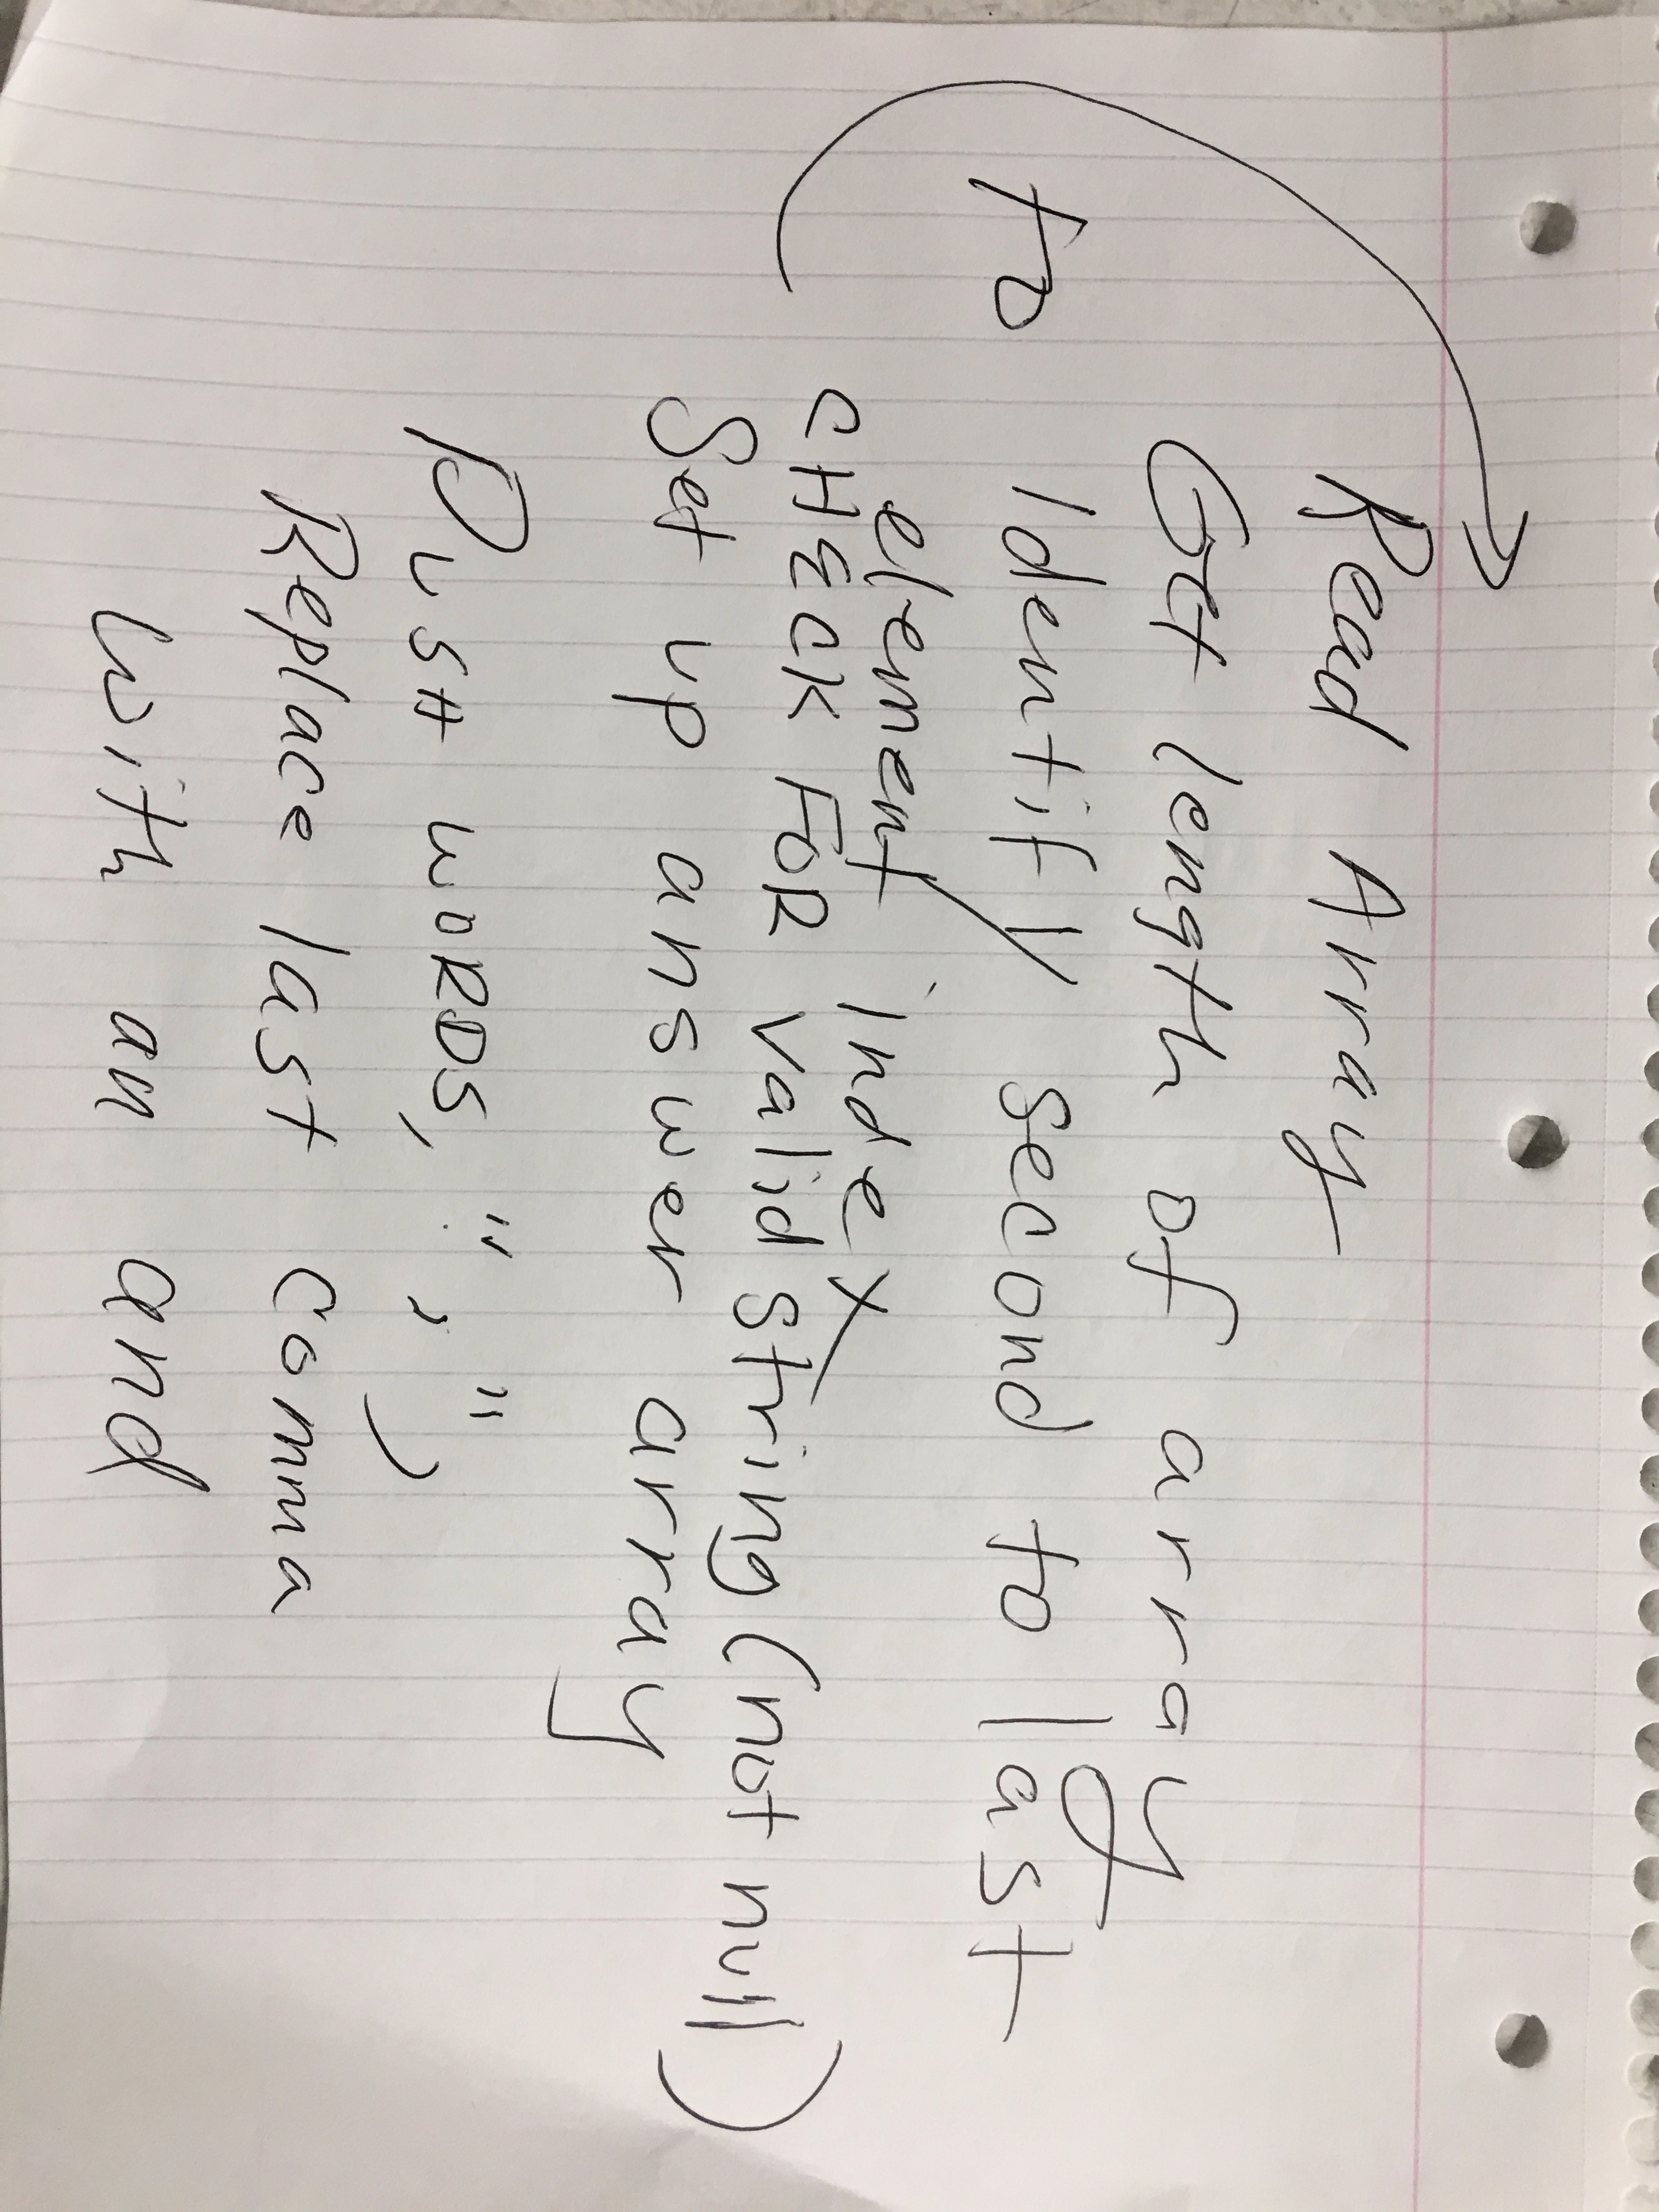 Read Array
Get length of array
Identify second to last
element index
to
CHECK FOR Valid string (not null)
Set up answer array
Push WORDS, " , "
Replace last comma
with an and